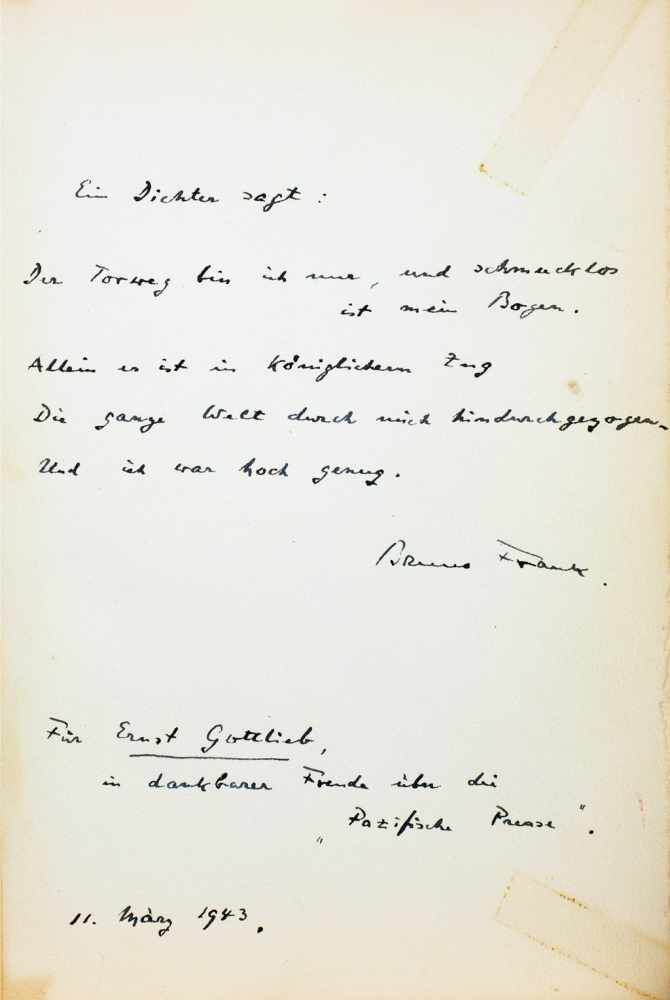 Ein Dichter sagt:
Der Torweg bin ich nur, und schmucklos
ist mein Bogen.
Allein es ist in königlichem Zug
Die ganze Welt durch mich hindurchgezogen -
Und ich war hoch genug.
Bruno Frank.
Für Ernst Gottlieb,
in dankbarer Freude über die
„Pazifische Presse“.
11. März 1943.